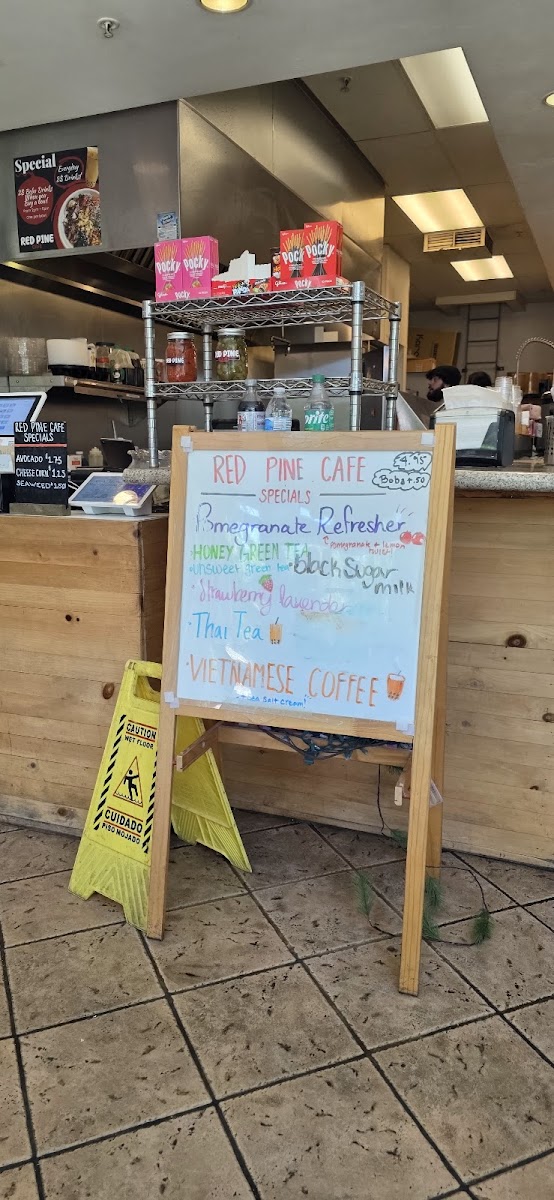 Special
Everyday
$2 Drinks!
RED PINE
POCKY
POCKY
POCKY
POCKY
POCKY
POCKY
POCKY
RED PINE
Sprite
RED PINE CAFE
SPECIALS
AVOCADO $1.75
CHEESE CORN $1.25
SEAWEED $1.50
RED PINE CAFE
4.95
Boba +.50
SPECIALS
Pomegranate Refresher
↑ Pomegranate + lemon
HONEY GREEN TEA
unsweet green tea
• black sugar
milk
• Strawberry lavender
• Thai Tea
• VIETNAMESE COFFEE
sea salt cream
CAUTION
WET FLOOR
CUIDADO
PISO MOJADO